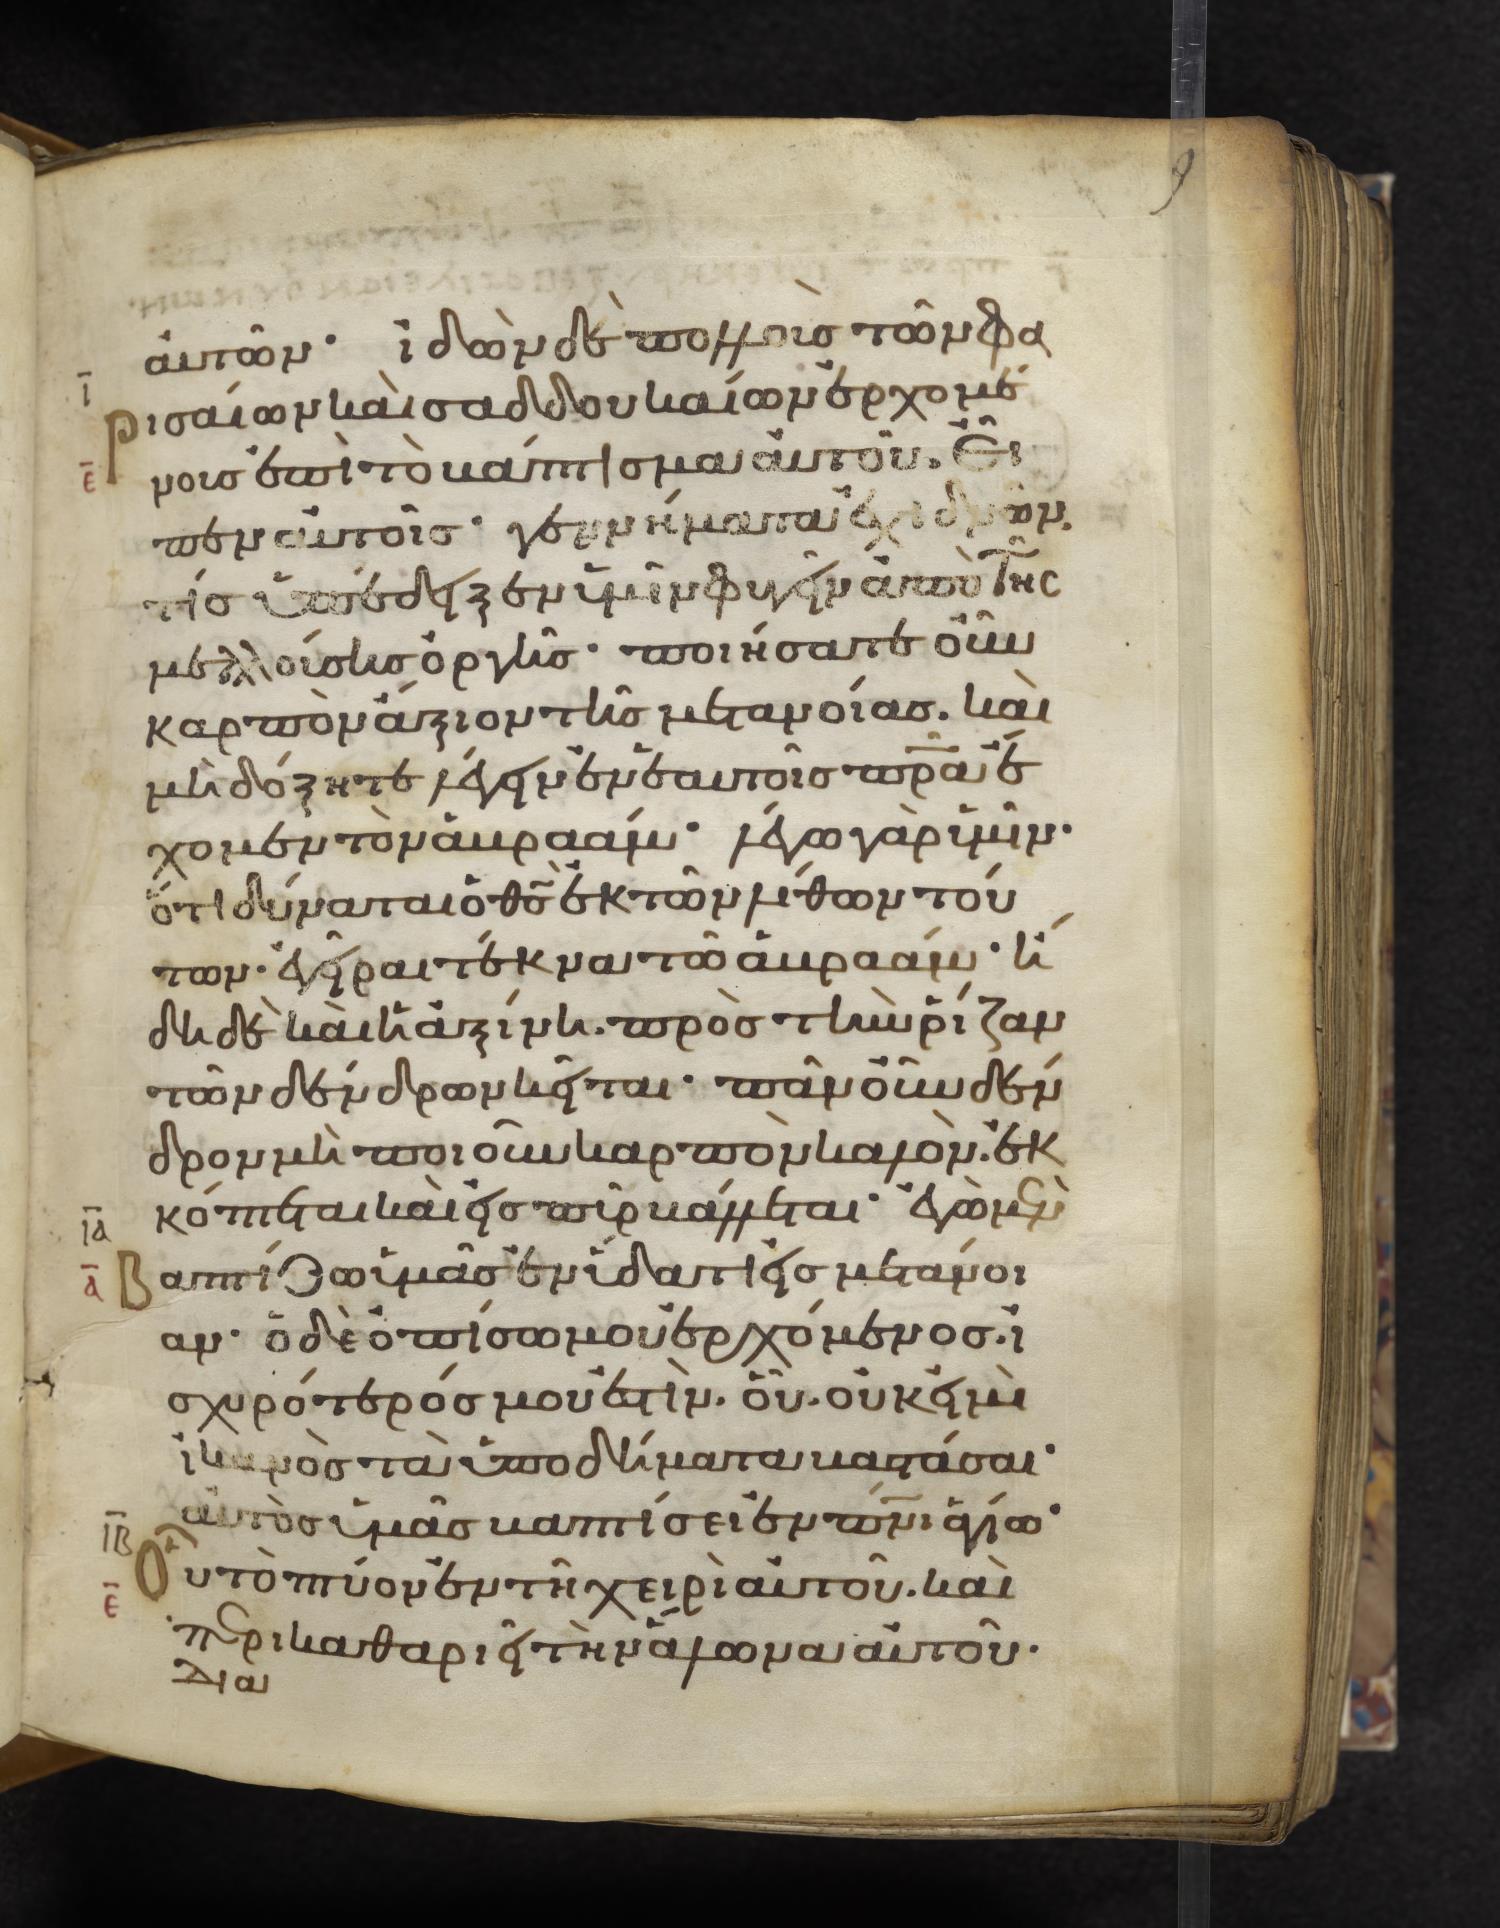 9
αὐτῶν· ἰδὼν δὲ πολλοὺς τῶν φα
ῑ
ρισαίων καὶ σαδδουκαίων ἐρχομέ
ε̄
νους ἐπὶ τὸ βάπτισμα αὐτοῦ. εἶ
πεν αὐτοῖς· γεννήματα ἐχιδνῶν.
τίς ὑπέδειξεν ὑμῖν φυγεῖν ἀπὸ τῆς
μελλούσης ὀργῆς· ποιήσατε οὖν
καρπὸν ἄξιον τῆς μετανοίας. καὶ
μὴ δόξητε λέγειν ἐν ἑαυτοῖς π̅ρ̅α ἔ
χομεν τὸν ἀβραάμ· λέγω γὰρ ὑμῖν·
ὅτι δύναται ὁ θ̅ς̅ ἐκ τῶν λίθων τού
των· ἐγεῖραι τέκνα τῶ ἀβραάμ· ἤ
δη δὲ καὶ ἡ ἀξίνη. πρὸς τὴν ῥίζαν
τῶν δένδρων κεῖται· πᾶν οὖν δέν
δρον μὴ ποιοῦν καρπὸν καλὸν. ἐκ
κόπτεται καὶ εἰς πῦρ βάλλεται· ἐγὼ μὲν
ῑᾱ
βαπτίζω ὑμᾶς ἐν ὕδατι εἰς μετάνοι
ᾱ
αν· ὁ δὲ ὀπίσω μου ἐρχόμενος. ἰ
σχυρότερός μου ἐστὶν. οὗ. οὐκ εἰμὶ
ἱκανὸς τὰ ὑποδήματα βαστάσαι·
αὐτὸς ὑμᾶς βαπτίσει ἐν π̅ν̅ι ἁγίω·
ῑβ̄
οὗ τὸ πτύον ἐν τῆ χειρὶ αὐτοῦ. καὶ
ε̄
περικαθαριεῖ τὴν ἅλωνα αὐτοῦ·
δια